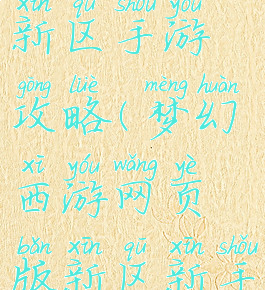 xīn qū shǒu yóu
新区手游
gōng lüè mèng huàn
攻略(梦幻
xī yóu wǎng yè
西游网页
bǎn xīn qū xīn shǒu
版新区新手